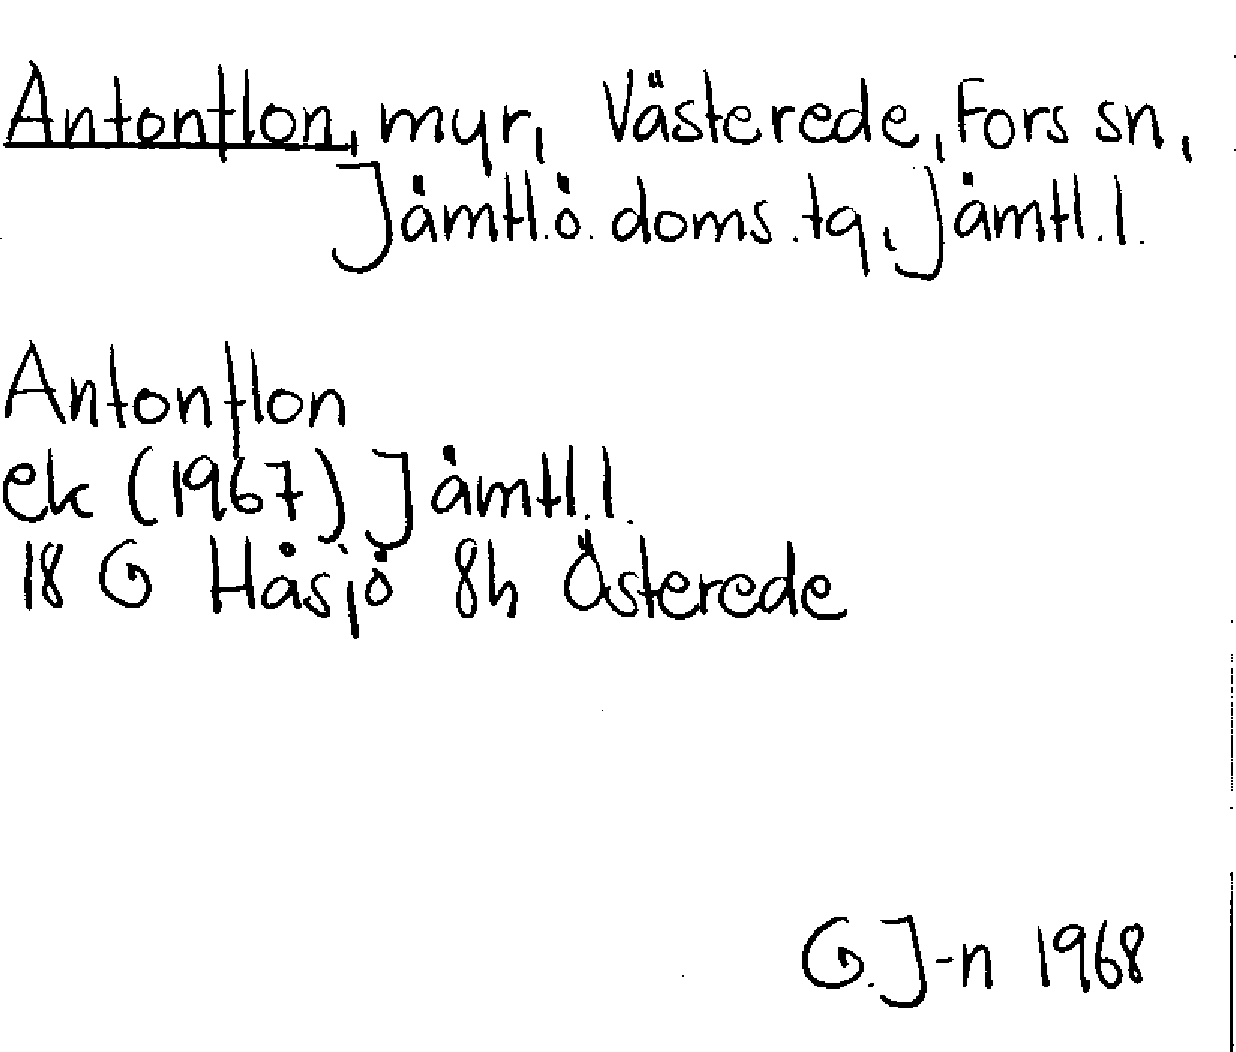 Antonflon, myr, Västerede, Fors sn,
Jämtl.ö. doms. tg, Jämtl.l.
Antonflon
ek (1967) Jämtl.l.
18 G Håsjö 8h Österede
G.J-n 1968